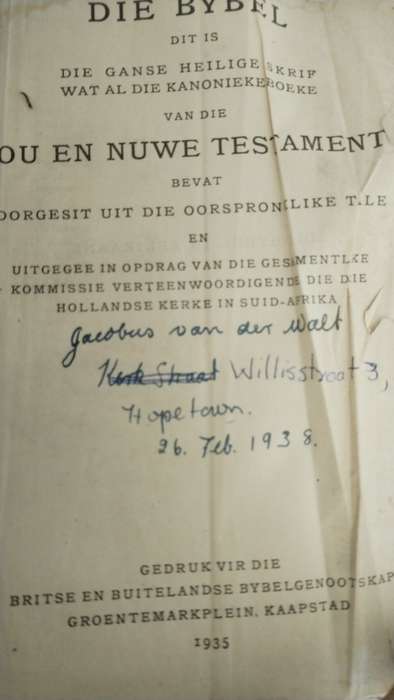 DIE BYBEL
DIT IS
DIE GANSE HEILIGE SKRIF
WAT AL DIE KANONIEKE BOEKE
VAN DIE
OU EN NUWE TESTAMENT
BEVAT
OORGESIT UIT DIE OORSPRONKLIKE TALE
EN
UITGEGEE IN OPDRAG VAN DIE GESAMENTLKE
KOMMISSIE VERTEENWOORDIGENDE DIE DIE
HOLLANDSE KERKE IN SUID-AFRIKA
Jacobus van der Walt
Kerk Straat Willisstraat 3,
Hopetown.
26. Feb. 1938.
GEDRUK VIR DIE
BRITSE EN BUITELANDSE BYBELGENOOTSKAP
GROENTEMARKPLEIN, KAAPSTAD
1935